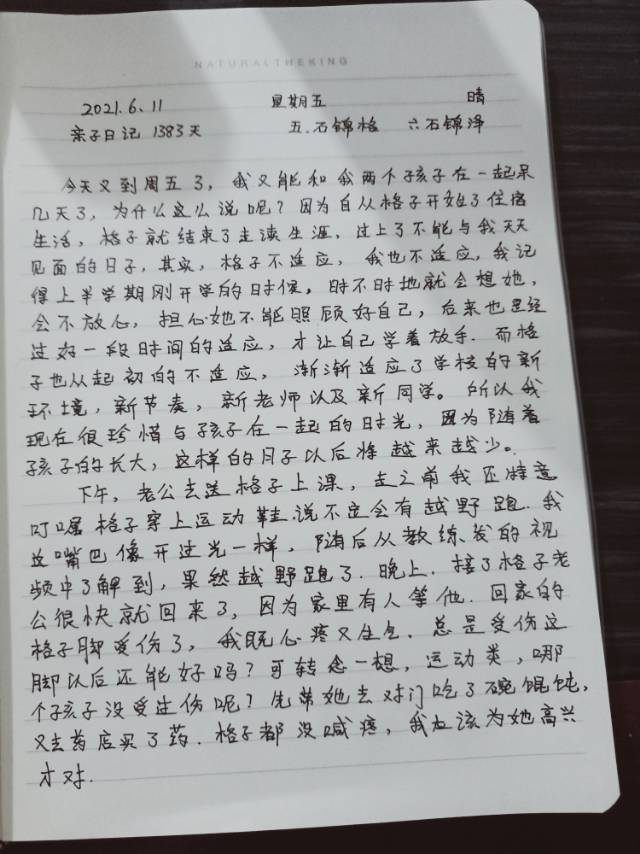 NATURALTHEKING
2021.6.11 星期五 晴
亲子日记 1383天 五.石锦格 六石锦泽
今天又到周五了，我又能和我两个孩子在一起呆
几天了，为什么这么说呢？因为自从格子开始了住宿
生活，格子就结束了走读生涯，过上了不能与我天天
见面的日子，其实，格子不适应，我也不适应，我记
得上半学期刚开学的时候，时不时地就会想她，
会不放心，担心她不能照顾好自己，后来也是经
过好一段时间的适应，才让自己学着放手.而格
子也从起初的不适应，渐渐适应了学校的新
环境，新节奏，新老师以及新同学。所以我
现在很珍惜与孩子在一起的时光，因为随着
孩子的长大，这样的日子以后将越来越少。
下午，老公去送格子上课，走之前我还特意
叮嘱格子穿上运动鞋.说不定会有越野跑.我
这嘴巴像开过光一样，随后从教练发的视
频中了解到，果然越野跑了.晚上.接了格子老
公很快就回来了，因为家里有人等他.回家的
格子脚受伤了，我既心疼又生气.总是受伤这
脚以后还能好吗？可转念一想，运动类，哪
个孩子没受过伤呢？先带她去对门吃了碗馄饨，
又去药店买了药.格子都没喊疼，我应该为她高兴
才对.